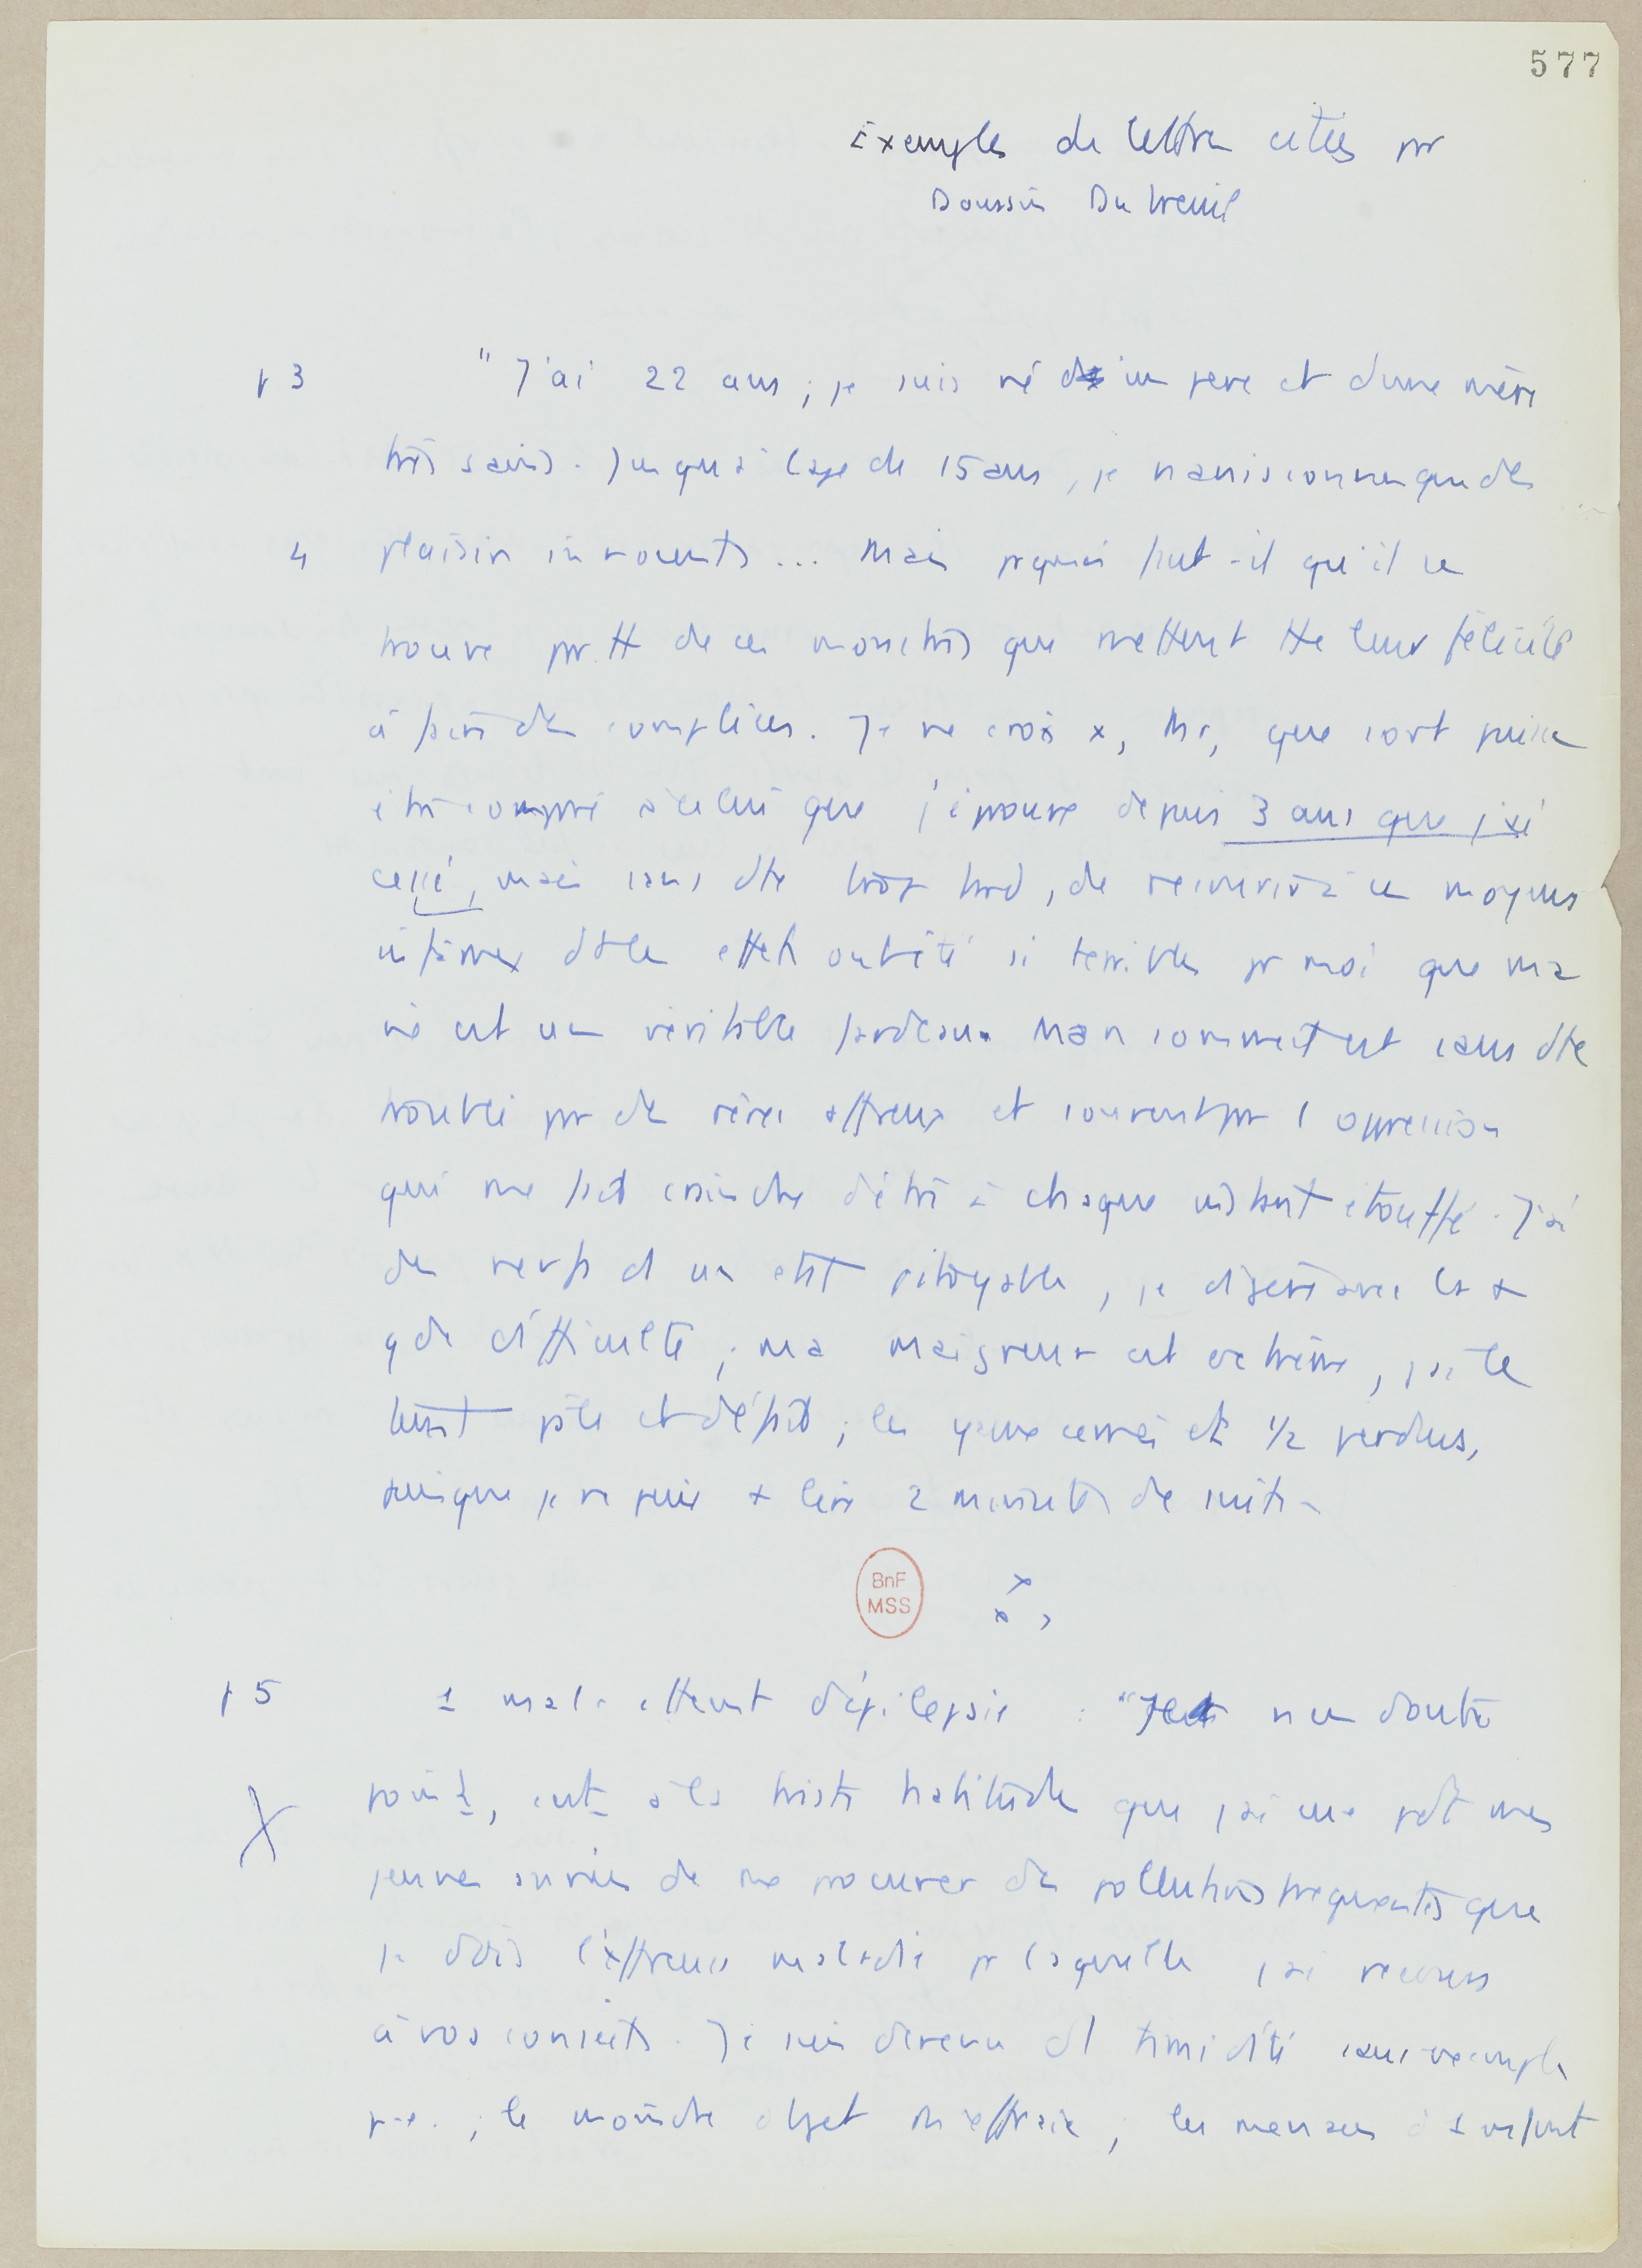 577
Exemples de lettres citées pr
Doussin Dubreuil
p 3 "J'ai 22 ans ; je suis né d'un père et d'une mère
très sains. Jusqu'à l'age de 15 ans, je n'avais connu que des
4 plaisirs innocents... Mais pquoi faut-il qu'il se
trouve prtt de ces monstres que mettent tte leur félicité
à faire des complices. Je ne crois x, Mr, que sort puisse
être comparé à celui que j'éprouve depuis 3 ans que j'ai
cessé, mais sans dte trop tard, de recourir à ce moyens
infâmes dt les effets ont été si terribles pr moi que ma
vie est un véritable fardeau. Mon sommeil est sans dte
troublé pr des rêves affreux et souvent pr l'oppression
qui me fait craindre d'être à chaque instant étouffé. J'ai
des nerfs d'un état pitoyable, je digère avec la +
gde difficulté ; ma maigreur est extrême, j'ai le
teint pâle et défait ; les yeux cernés et 1/2 perdus,
puisque je ne puis + lire 2 minutes de suite.
x
x ,
p 5 1 mal. atteint d'épilepsie : "Je n'en doute
point, c'est à la triste habitude que j'ai eue pdt mes
jeunes années de me procurer des pollutions fréquentes que
je dois l'affreuse maladie pr laquelle j'ai recours
à vos conseils. Je suis devenu d'1 timidité sans exemple
; le moindre objet m'effraie ; les menaces d'1 enfant
BnF
MSS